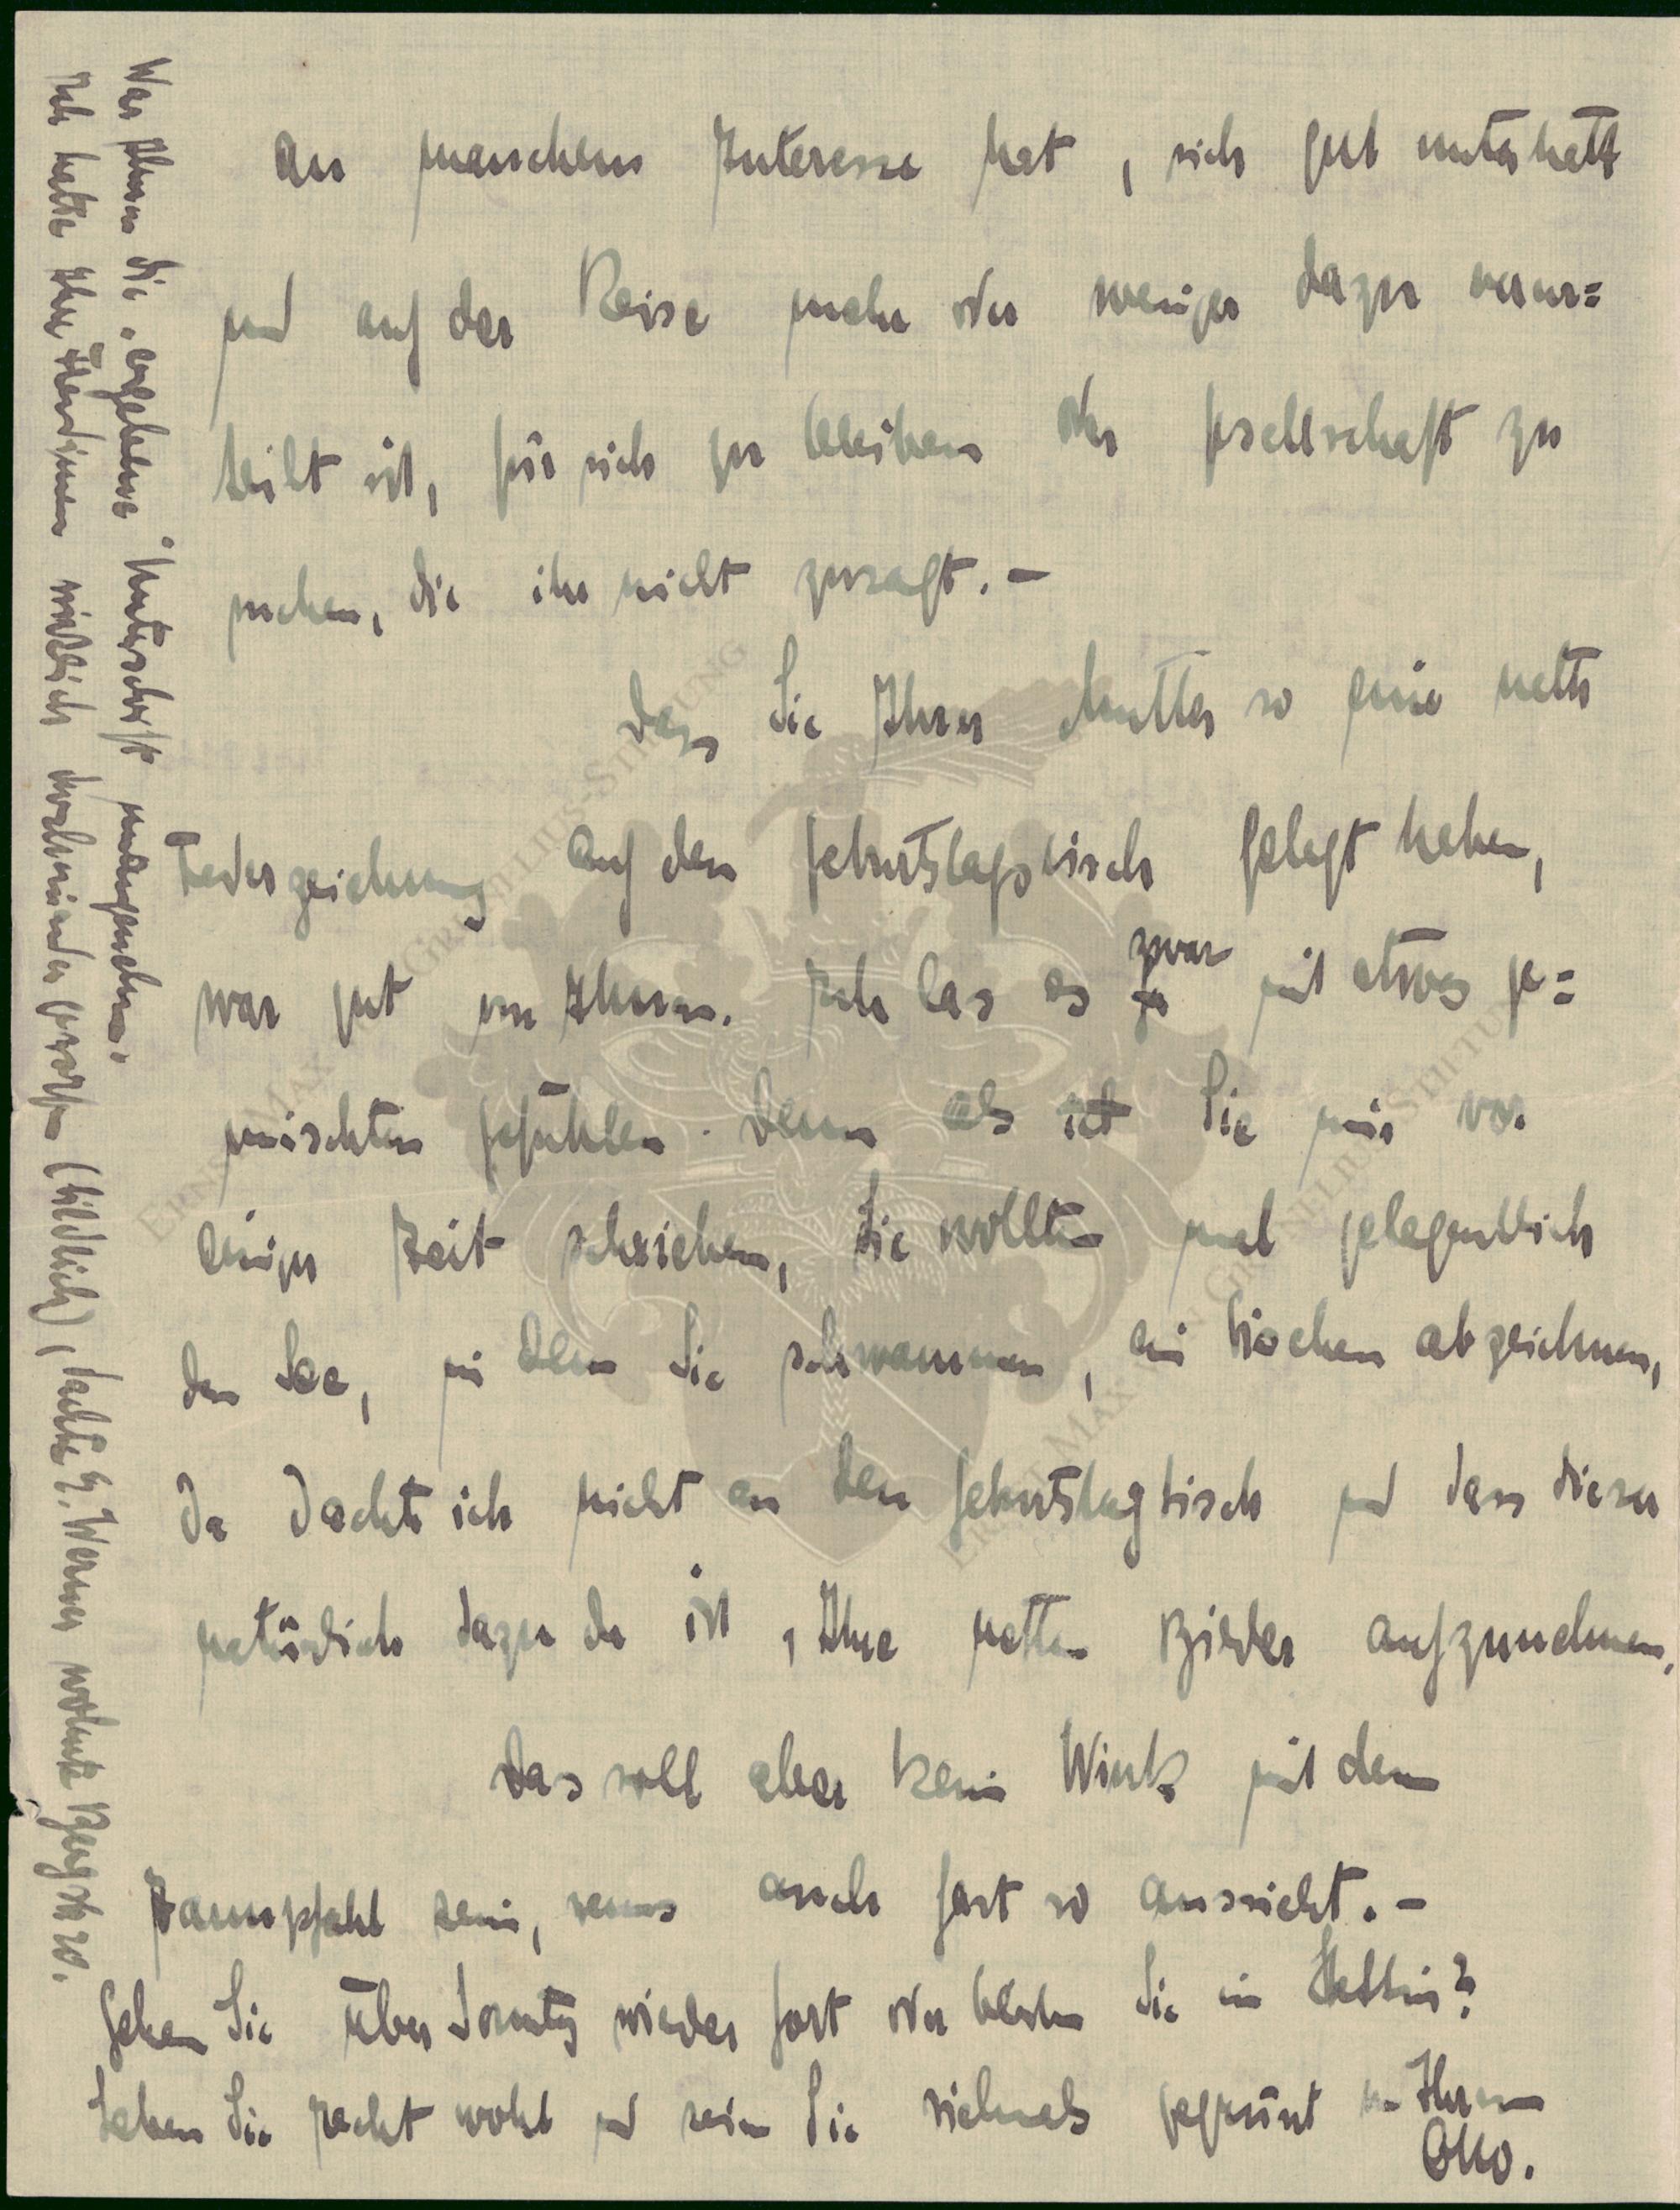 an manchem Interesse hat, sich gut unterhält
und auf der Reise mehr oder weniger dazu verur=
teilt ist, für sich zu bleiben oder Gesellschaft zu
suchen, die ihr nicht zusagt. –
Dass Sie Ihrer Mutter so eine nette
Federzeichnung auf den Geburtstagstisch gelegt haben,
war gut von Ihnen. Ich las es zwar mit etwas ge=
mischten Gefühlen. Denn als Sie mir vor
einiger Zeit schrieben, Sie wollten mal gelegentlich
den See, in dem Sie schwammen, ein bischen abzeichnen,
da dachte ich nicht an den Geburtstagtisch und dass dieser
natürlich dazu da ist, Ihre netten Bilder aufzunehmen.
Das soll aber kein Wink mit dem
Zaunpfahl sein, wenns auch fast so aussieht. –
Gehen Sie über Sonntag wieder fort oder bleiben Sie in Stettin?
Leben Sie recht wohl und seien Sie vielmals gegrüsst von Ihrem
Otto.
War Ihnen die „ergebene" Unterschrift unangenehm?
Ich hatte Ihr Händchen wirklich doch wieder (bildlich), dachte E. Werner wohnte Bergstr 20.
ERNST MAX VON GRUNELIUS-STIFTUNG
ERNST MAX VON GRUNELIUS-STIFTUNG